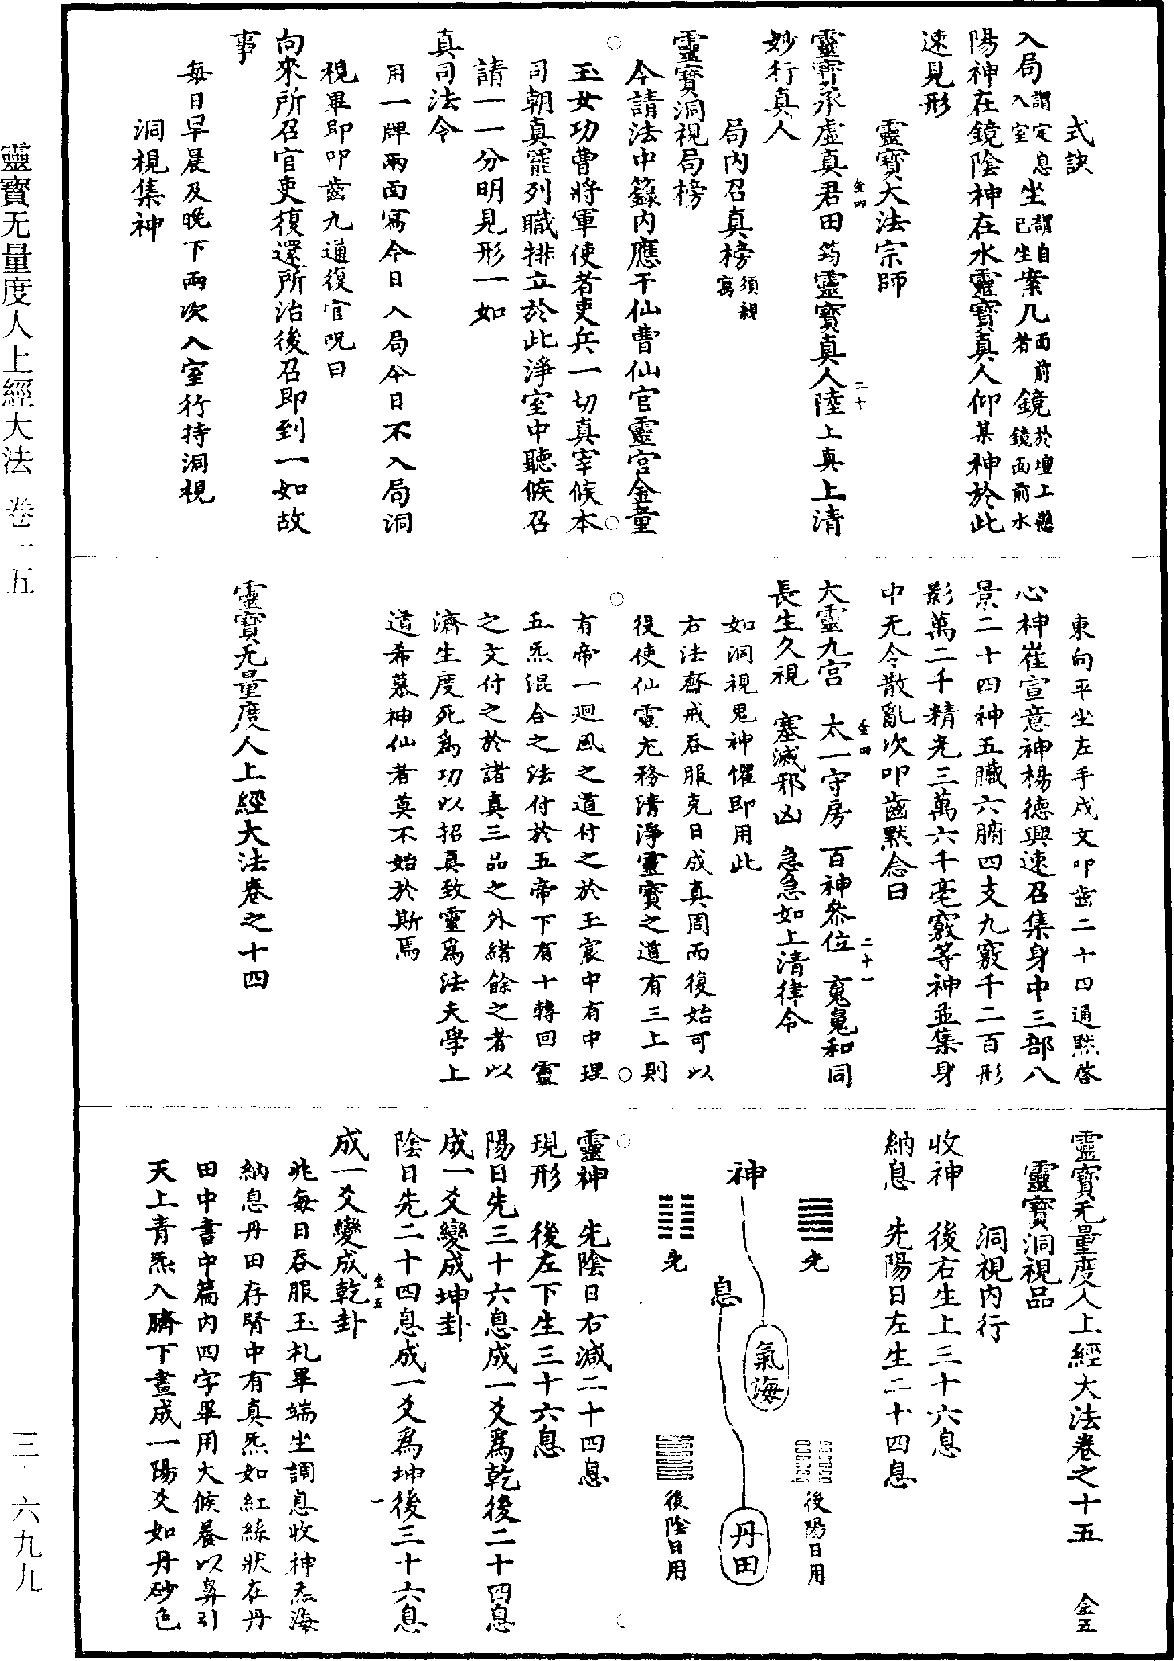 式訣
入局謂定息入室坐謂自己坐案几面前者鏡於壇上懸鏡面前水
陽神在鏡陰神在水靈寶真人仰某神於此
速見形
靈寶大法宗師
靈寶承虛真君田筠靈寶真人陸上真上清
妙行真人
局內召真榜須親寫
靈寶洞視局榜
今請法中籙內應干仙曹仙官靈官金童
玉女功曹將軍使者吏兵一切真宰候本
司朝真罷列職排立於此淨室中聽候召
請一一分明見形一如
真司法令
用一牌兩面寫今日入局今日不入局洞
視畢即叩齒九通復官呪曰
向來所召官吏復還所治後召即到一如故
事
每日早晨及晚下兩次入室行持洞視
洞視集神
東向平坐左手戌文叩齒二十四通黙啓
心神崔宣意神楊德興速召集身中三部八
景二十四神五臟六腑四支九竅千二百形
影萬二千精光三萬六千毫竅等神並集身
中无令散亂次叩齒黙念曰
大靈九宮　太一守房　百神參位　䰟魄和同
長生久視　塞滅邪凶　急急如上清律令
如洞視鬼神懼即用此
右法齋戒吞服克日成真周而復始可以
役使仙靈尤務清淨靈寶之道有三上則
有帝一迴風之道付之於玉宸中有中理
五炁混合之法付於五帝下有十轉回靈
之文付之於諸真三品之外緒餘之者以
濟生度死為功以招真致靈為法夫學上
道希慕神仙者莫不始於斯焉
靈寶无量度人上經大法卷之十四
靈寶无量度人上經大法卷之十五　金五
靈寶洞視品
洞視內行
收神　後右生上三十六息
納息　先陽日左生二十四息
先
後陽日用
神
氣海
息
丹田
先
後陰日用
靈神　先陰日右減二十四息
現形　後左下生三十六息
陽日先三十六息成一爻為乾後二十四息
成一爻變成坤卦
陰日先二十四息成一爻為坤後三十六息
成一爻變成乾卦
兆每日吞服玉札畢端坐調息收神炁海
納息丹田存腎中有真炁如紅絲狀在丹
田中書中篇內四字畢用大候養以鼻引
天上青炁入臍下畫成一陽爻如丹砂色
金四
二十
金四
二十一
金五
一
靈寶无量度人上經大法　卷一五
三·六九九